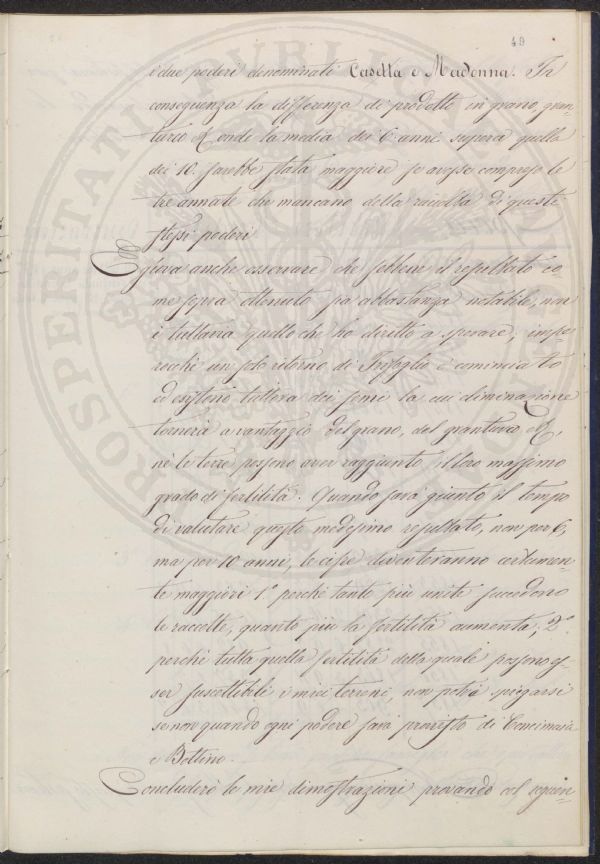 49
i due poderi denominati Casetta e Madonna. In
conseguenza la differenza di prodotto in grano, gran-
turco &, onde la media dei 6. anni supera quella
dei 10. sarebbe stata maggiore se avesse compreso le
tre annate che mancano della raccolta di questi
stessi poderi
Giova anche osservare che sebbene il resultato co
me sopra ottenuto sia abbastanza notabile, non
è tuttavia quello che ho diritto a sperare, impe-
rocchè un solo ritorno di Trifoglio è cominciato
ed esistono tuttora dei semi la cui diminuzione
tornerà a vantaggio del grano, del granturco &,
nè le terre possono aver raggiunto il loro massimo
grado di fertilità. Quando sarà giunto il tempo
di valutare questo medesimo resultato, non per 6,
ma per 10 anni, le cifre diventeranno certamen-
te maggiori 1.° perchè tanto più unite succedono
le raccolte, quanto più la fertilità aumenta; 2.°
perchè tutta quella fertilità della quale possono es-
ser suscettibili i miei terreni, non potrà spiegarsi
se non quando ogni podere sarà provvisto di Concimaia
e Bottino.
Concluderò le mie dimostrazioni provando col seguen-
PROSPERITATI PVBLICAE